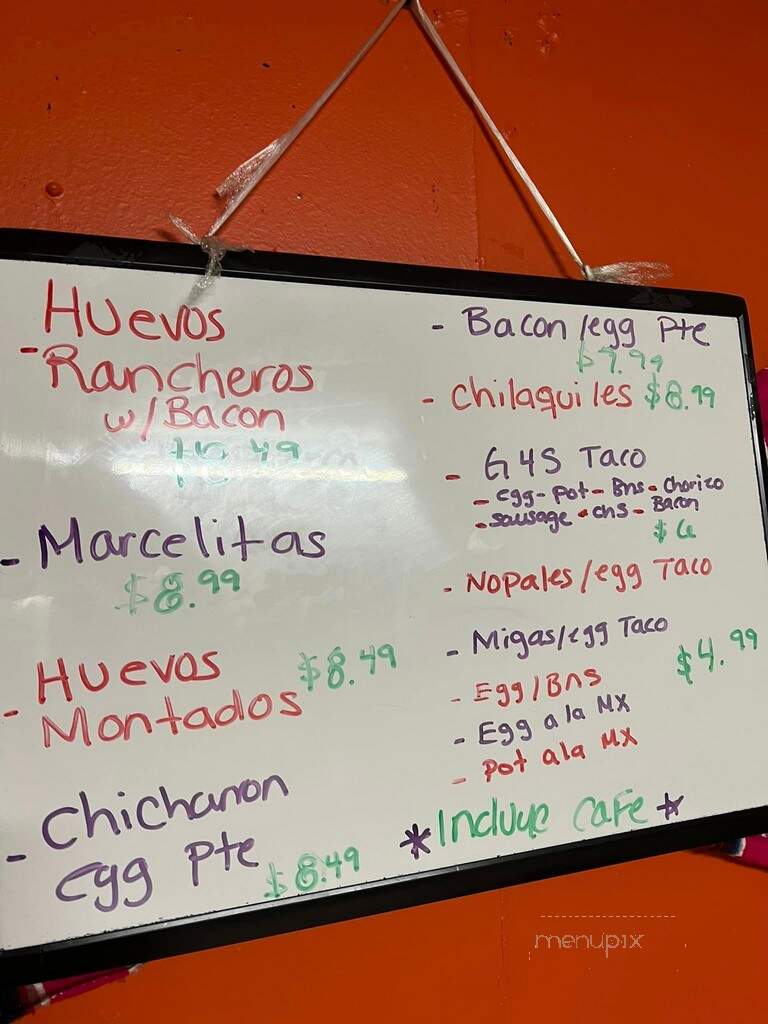 Huevos
- Rancheros
w/Bacon
- Marcelitas
$8.99
Huevos $8.49
- Montados
Chicharron
- Egg Pte
$8.49
- Bacon/egg Pte
$7.99
- Chilaquiles $8.99
- G4S Taco
- egg - Pot - Bns - Chorizo
- sausage - chs - Bacon
$6
- Nopales/egg Taco
- Migas/egg Taco
$4.99
- Egg/Bns
- Egg a la MX
- Pot a la MX
*Incluye Cafe*
menupix